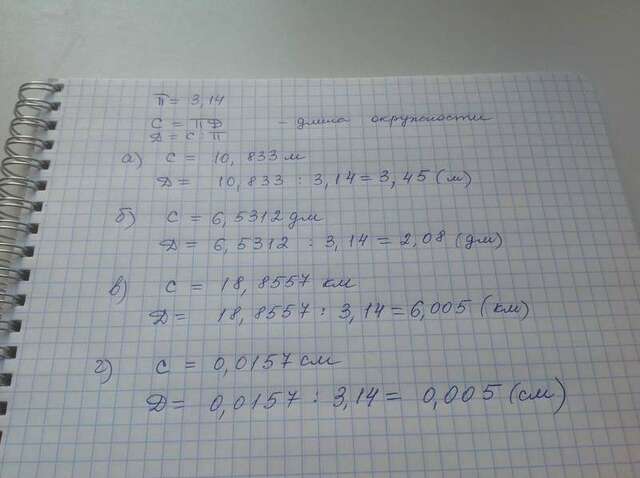 П = 3,14
С = ПД - длина окружности
Д = С : П
а) С = 10,833 м
Д = 10,833 : 3,14 = 3,45 (м)
б) С = 6,5312 дм
Д = 6,5312 : 3,14 = 2,08 (дм)
в) С = 18,8557 км
Д = 18,8557 : 3,14 = 6,005 (км)
г) С = 0,0157 см
Д = 0,0157 : 3,14 = 0,005 (см)